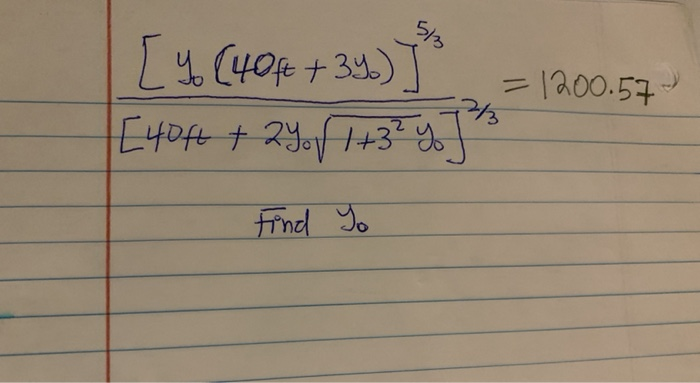 [y₀(40ft + 3y₀)]^5/3
[40ft + 2y₀√1+3² y₀]^2/3
= 1200.57
Find y₀